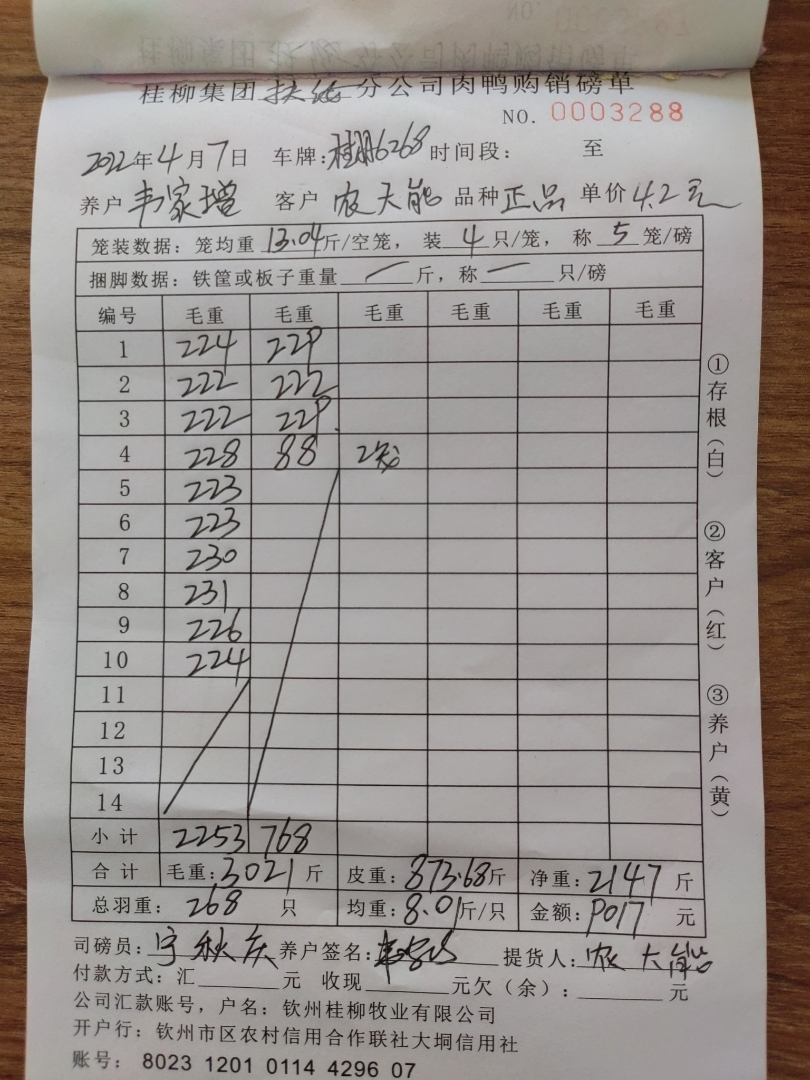 桂柳集团扶绥分公司肉鸭购销磅单
NO. 0003288
2022年4月7日 车牌: 6268 时间段: 至
养户 韦家增 客户 农天能 品种 正品 单价 4.2元
笼装数据: 笼均重 13.04斤/空笼, 装 4 只/笼, 称 5 笼/磅
捆脚数据: 铁筐或板子重量 / 斤, 称 一 只/磅
编号 毛重 毛重 毛重 毛重 毛重 毛重
1 224 229
2 222 222
3 222 229
4 228 88 2笼
5 223
6 223
7 230
8 231
9 226
10 224
11
12
13
14
小计 2253 768
合计 毛重: 3021 斤 皮重: 873.68斤 净重: 2147 斤
总羽重: 268 只 均重: 8.01斤/只 金额: 9017 元
司磅员: 宁秋庆 养户签名: 提货人: 农天能
付款方式: 汇______元 收现______元欠(余): ______元
公司汇款账号, 户名: 钦州桂柳牧业有限公司
开户行: 钦州市区农村信用合作联社大垌信用社
账号: 8023 1201 0114 4296 07
①存根(白)
②客户(红)
③养户(黄)